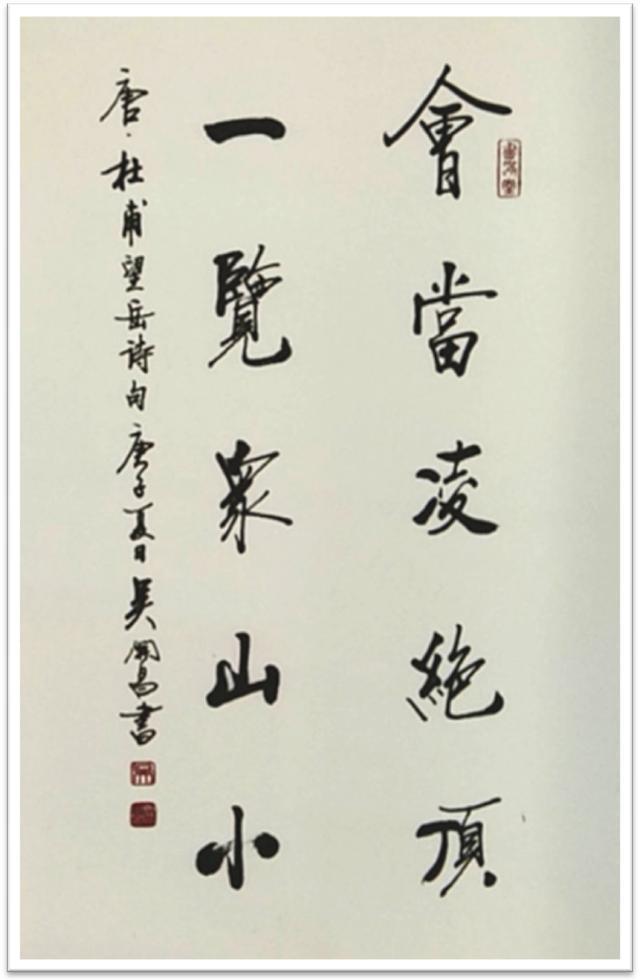 會當凌絶頂
一覽衆山小
唐·杜甫望岳诗句庚子夏日吴書